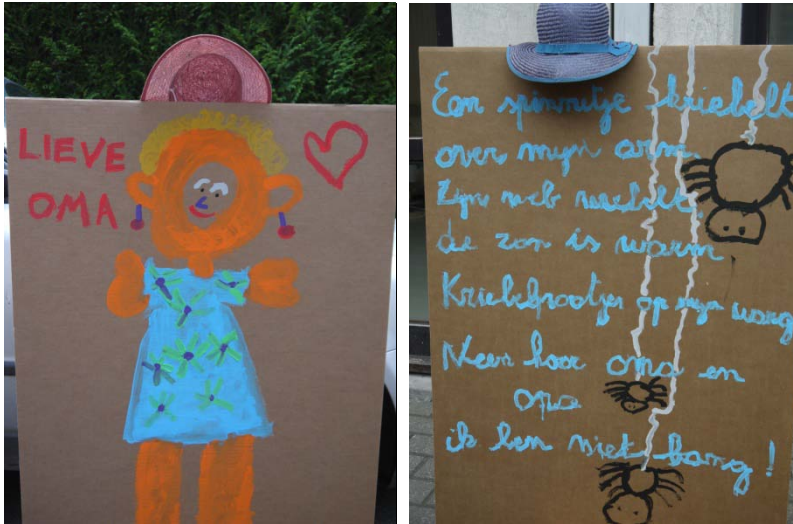 LIEVE
OMA
Een spinnetje kriebelt
over mijn arm.
Zijn web wiebelt,
de zon is warm
Kriebelpootjes op mijn wang
Neen hoor oma en
opa
ik ben niet bang!